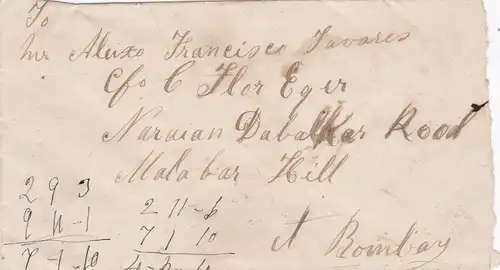 To
Mr Aleixo Francisco Tavares
C/o C Flor Eger
Naraian Dabalkar Road
Malabar Hill
At Bombay
2 9 3
9 11-1
7-1-10
2 11-6
7 1 10